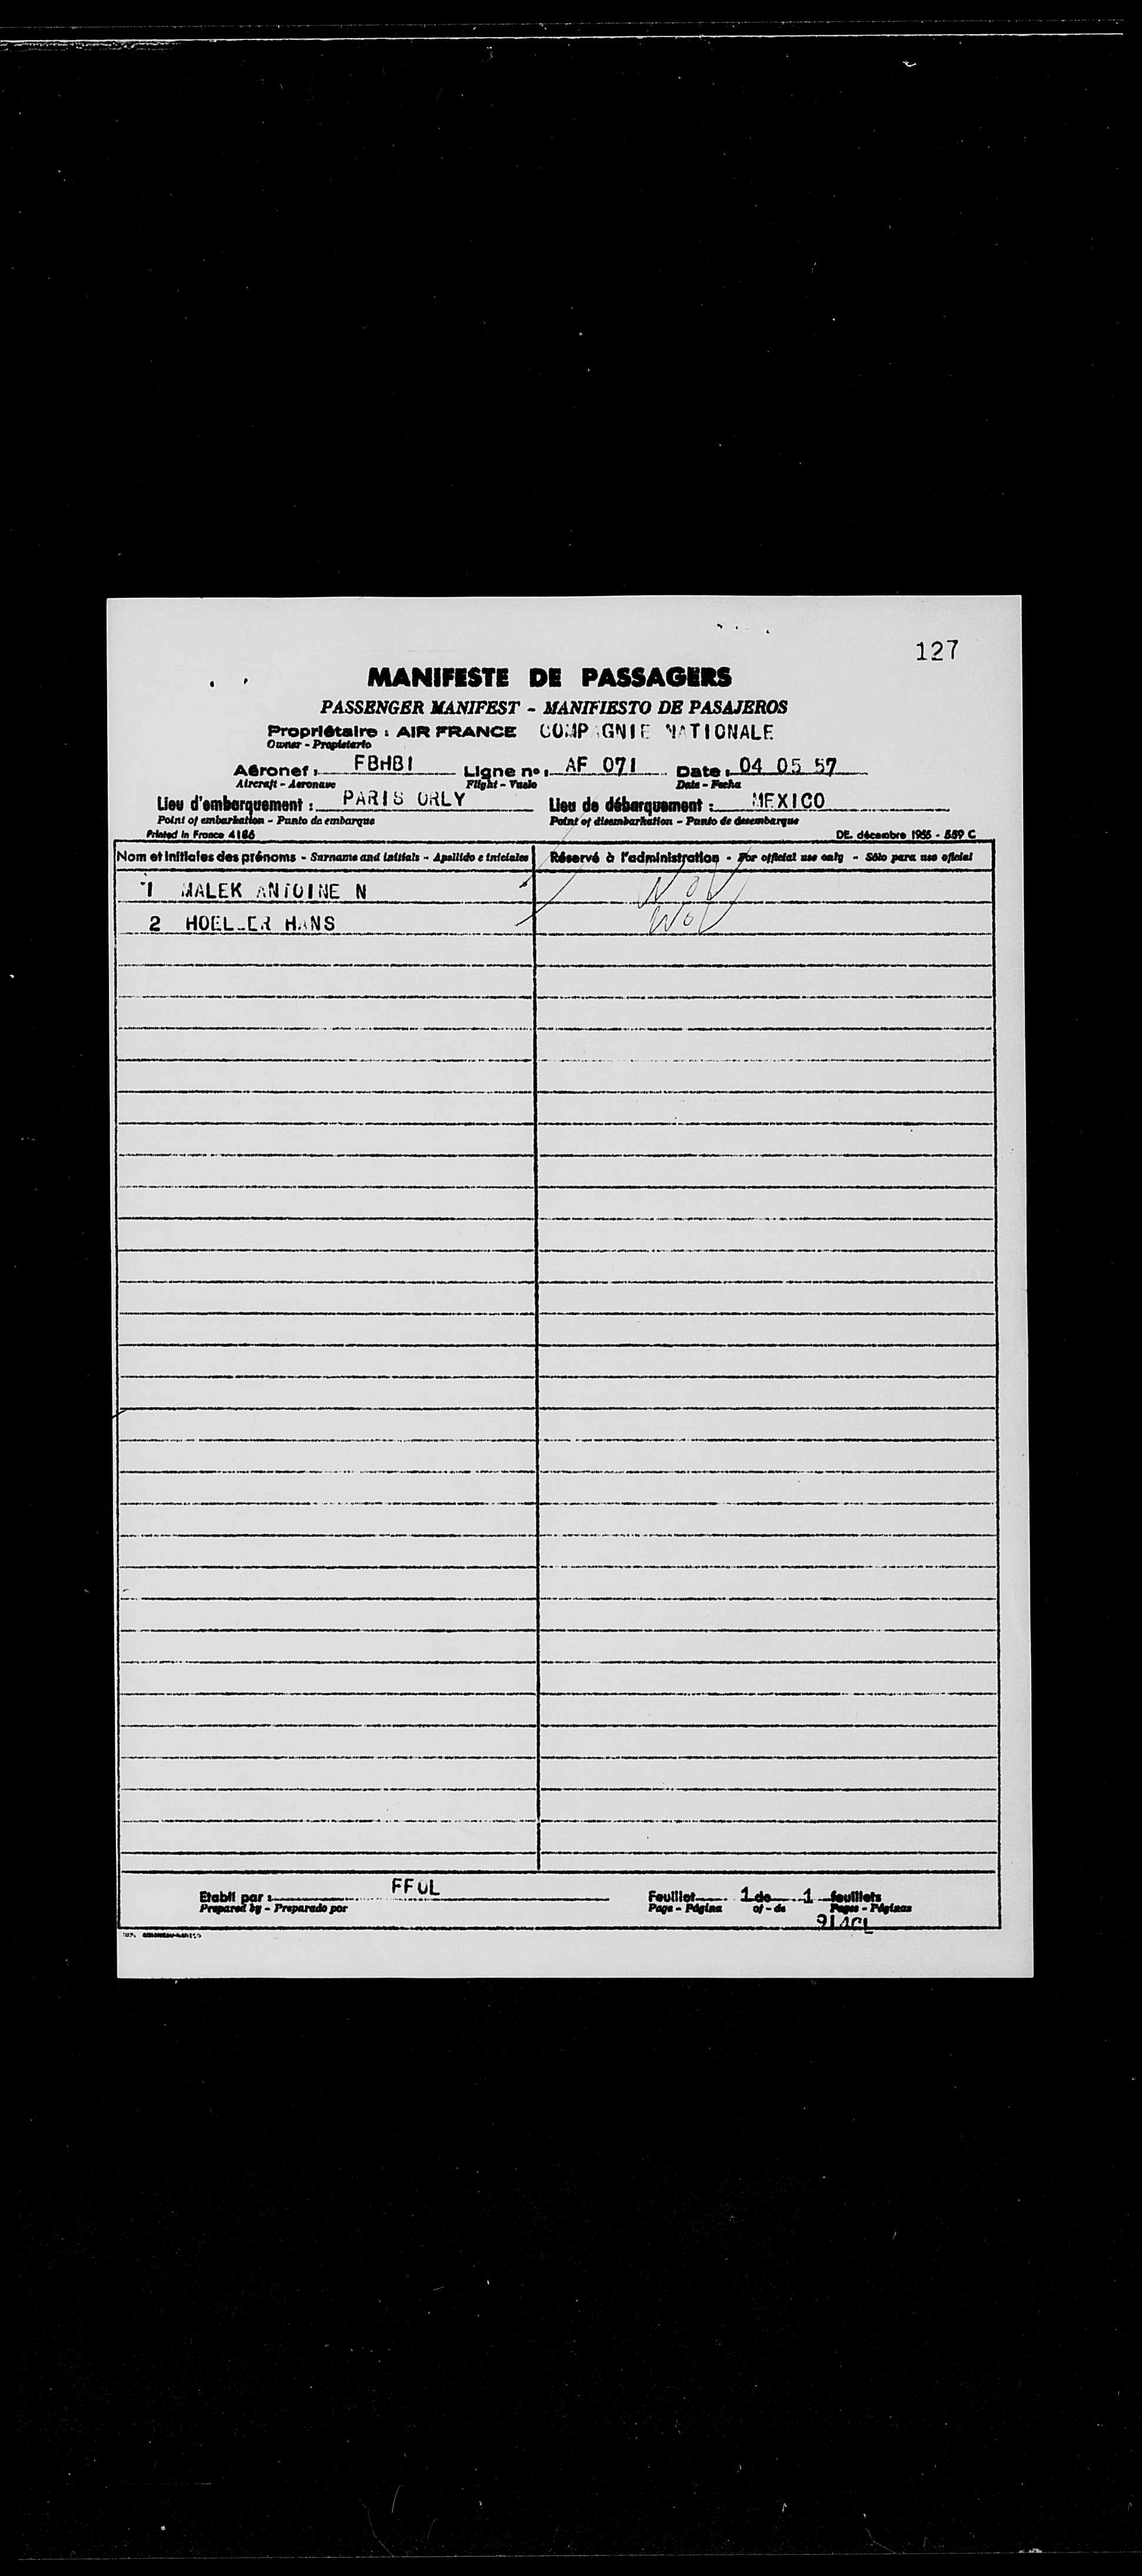 127
MANIFESTE DE PASSAGERS
PASSENGER MANIFEST - MANIFIESTO DE PASAJEROS
Propriétaire : AIR FRANCE COMPAGNIE NATIONALE
Owner - Propietario
Aéronef : FBHBI Ligne n° : AF 071 Date : 04 05 57
Aircraft - Aeronave Flight - Vuelo Date - Fecha
Lieu d'embarquement : PARIS ORLY Lieu de débarquement : MEXICO
Point of embarkation - Punto de embarque Point of disembarkation - Punto de desembarque
Printed in France 4186 DE. décembre 1955 - 559 C
Nom et initiales des prénoms - Surname and initials - Apellido e iniciales Réservé à l'administration - For official use only - Sólo para uso oficial
1 MALEK ANTOINE N
2 HOELLER HANS
Etabli par : FFUL Feuillet 1 de 1 feuillets
Prepared by - Preparado por Page - Página of - de Pages - Páginas